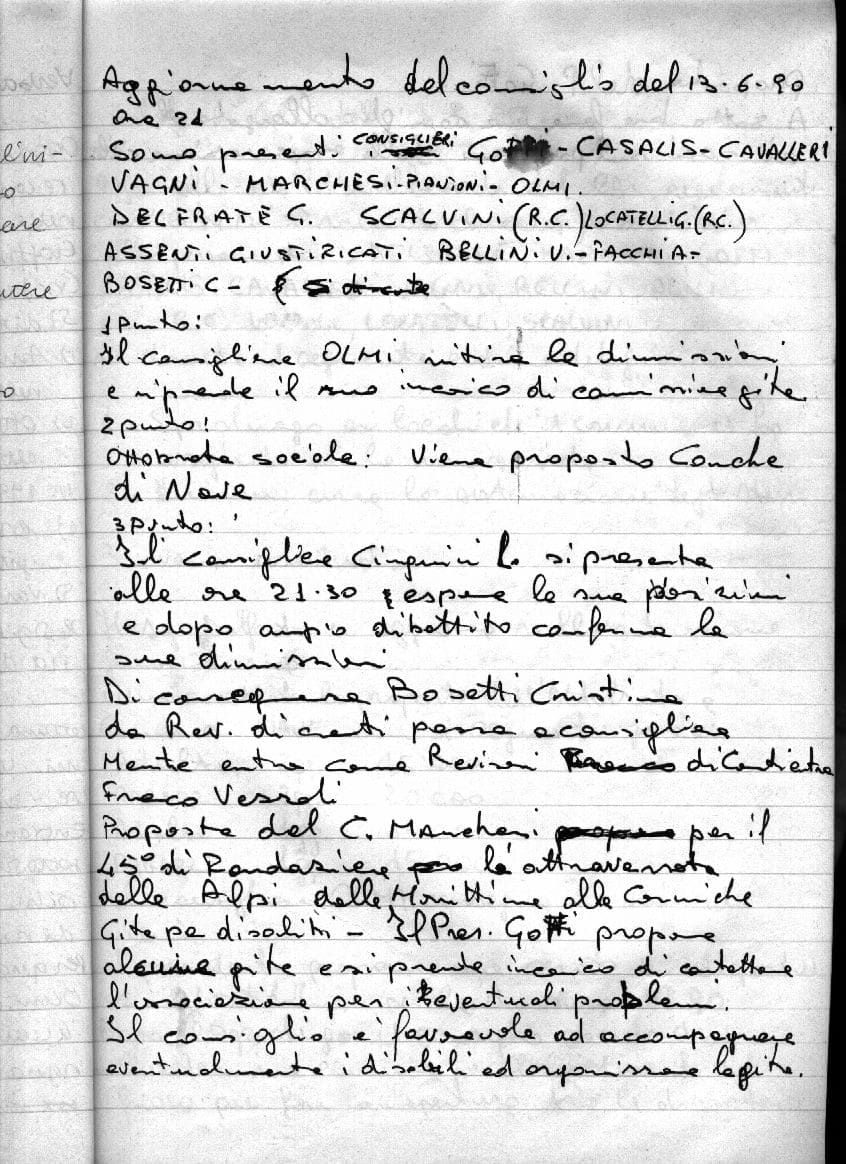 Aggiornamento del consiglio del 13.6.90
ore 21
Sono presenti i CONSIGLIERI Gotti - CASALIS - CAVALLERI
VAGNI - MARCHESI - PIANTONI - OLMI.
DELFRATE G. SCALVINI (R.C.) LOCATELLI G. (R.C.)
ASSENTI GIUSTIFICATI BELLINI V. - FACCHI A -
BOSETTI C -
1 Punto:
Il consigliere OLMI ritira le dimissioni
e riprende il suo incarico di commissione gite
2 punto:
Ottobrata sociale: Viene proposto Conche
di Nave
3 Punto:
Il consigliere Cinquini L. si presenta
alle ore 21.30 espone le sue posizioni
e dopo ampio dibattito conferma le
sue dimissioni
Di conseguenza Bosetti Cristina
da Rev. di conti passa a consigliere
Mentre entra come Revisori di Conti entra
Franco
Proposta del C. Marchesi per il
45° di Fondazione la attraversata
delle Alpi dalle Marittime alle Carniche
Gite per disabili - Il Pres. Gotti propone
alcune gite e si prende incarico di contattare
l'associazione per i eventuali problemi.
Il consiglio è favorevole ad accompagnare
eventualmente i disabili ed organizzare le gite.
l'ini-
o
are
vere
o